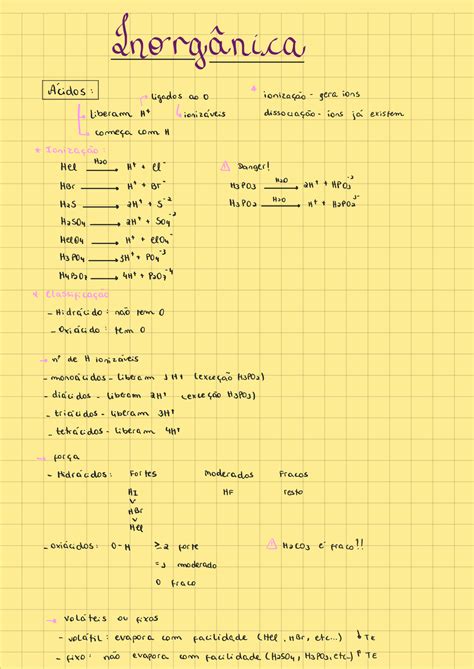 Inorgânica
Ácidos:
ligados ao O
liberam H⁺
ionizáveis
começa com H
* ionização - gera íons
dissociação - íons já existem
* Ionização:
HCl —H2O→ H⁺ + Cl⁻
HBr → H⁺ + Br⁻
H2S → 2H⁺ + S⁻²
H2SO4 → 2H⁺ + SO4⁻²
HClO4 → H⁺ + ClO4⁻
H3PO4 → 3H⁺ + PO4⁻³
H4P2O7 → 4H⁺ + P2O7⁻⁴
⚠ Danger!
H3PO3 —H2O→ 2H⁺ + HPO3⁻²
H3PO2 —H2O→ H⁺ + H2PO2⁻
* Classificação
- Hidrácido: não tem O
- Oxiácido: tem O
→ nº de H ionizáveis
- monoácidos - liberam 1H⁺ (exceção H3PO2)
- diácidos - liberam 2H⁺ (exceção H3PO3)
- triácidos - liberam 3H⁺
- tetrácidos - liberam 4H⁺
→ força
- Hidrácidos: Fortes Moderados Fracos
HI HF resto
HBr
HCl
- oxiácidos: O-H ≥2 forte
=1 moderado
0 fraco
⚠ H2CO3 é fraco!!
→ voláteis ou fixos
- volátil: evapora com facilidade (HCl, HBr, etc...) ↓TE
- fixo: não evapora com facilidade (H2SO4, H3PO3, etc.) ↑TE